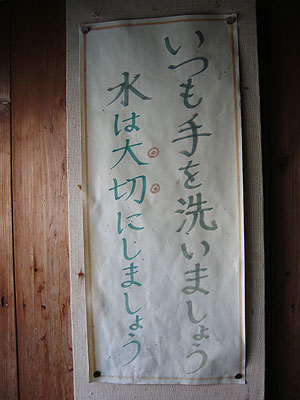 いつも手を洗いましょう
水は大切にしましょう